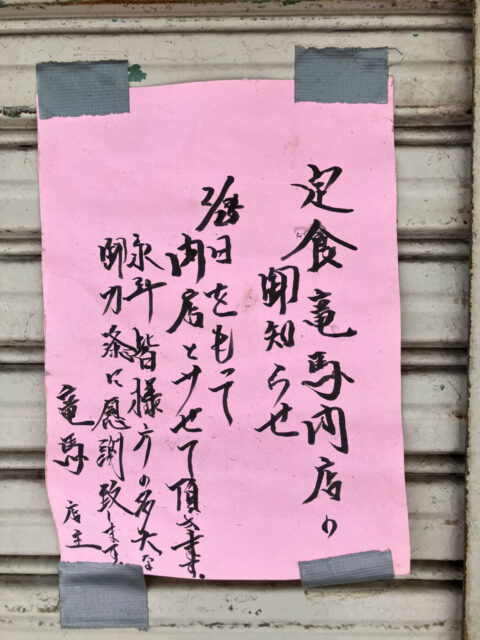 定食竜馬閉店の
お知らせ
2/28日をもって
閉店とさせて頂きます。
永年皆様方の多大な
御力添に感謝致します。
竜馬 店主